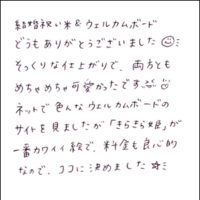 結婚祝い米＆ウェルカムボード
どうもありがとうございました
そっくりな仕上がりで、両方とも
めちゃめちゃ可愛かったです
ネットで色んなウェルカムボードの
サイトを見ましたが「きらきら姫」が
一番カワイイ絵で、料金も良心的
なので、ココに決めました☆ミ